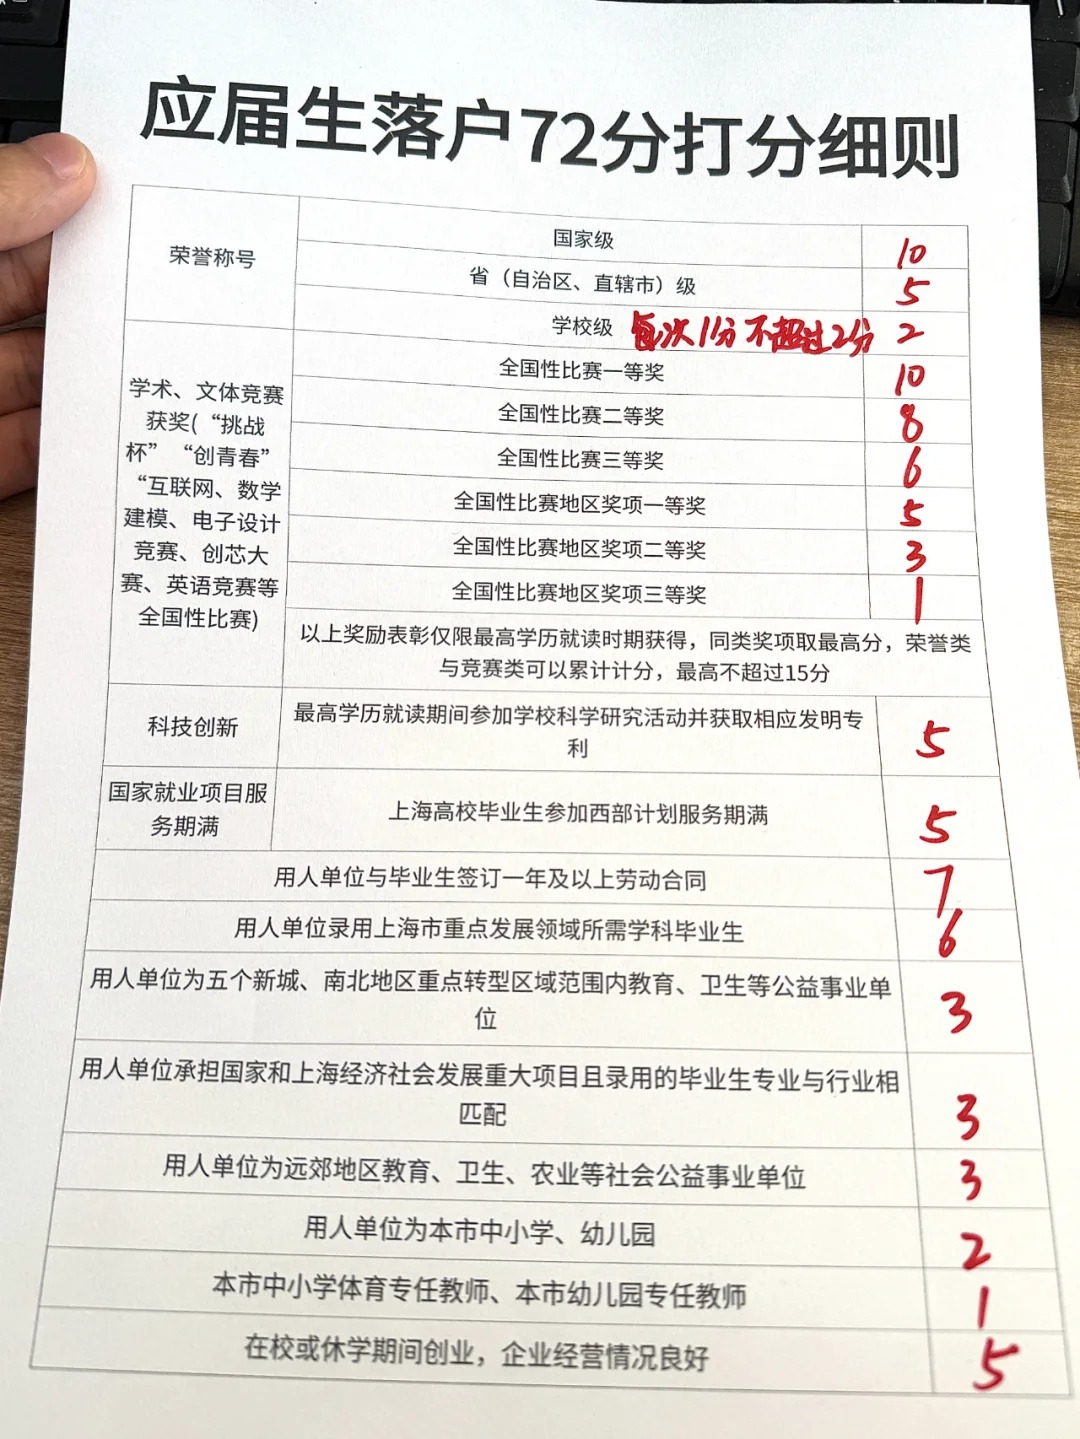 应届生落户72分打分细则
荣誉称号
国家级 10
省（自治区、直辖市）级 5
学校级 每次1分不超过2分 2
学术、文体竞赛
获奖(“挑战
杯”“创青春”
“互联网、数学
建模、电子设计
竞赛、创芯大
赛、英语竞赛等
全国性比赛)
全国性比赛一等奖 10
全国性比赛二等奖 8
全国性比赛三等奖 6
全国性比赛地区奖项一等奖 5
全国性比赛地区奖项二等奖 3
全国性比赛地区奖项三等奖 1
以上奖励表彰仅限最高学历就读时期获得，同类奖项取最高分，荣誉类
与竞赛类可以累计计分，最高不超过15分
科技创新
最高学历就读期间参加学校科学研究活动并获取相应发明专
利
5
国家就业项目服
务期满
上海高校毕业生参加西部计划服务期满 5
用人单位与毕业生签订一年及以上劳动合同 7
用人单位录用上海市重点发展领域所需学科毕业生 6
用人单位为五个新城、南北地区重点转型区域范围内教育、卫生等公益事业单
位
3
用人单位承担国家和上海经济社会发展重大项目且录用的毕业生专业与行业相
匹配
3
用人单位为远郊地区教育、卫生、农业等社会公益事业单位 3
用人单位为本市中小学、幼儿园 2
本市中小学体育专任教师、本市幼儿园专任教师 1
在校或休学期间创业，企业经营情况良好 5